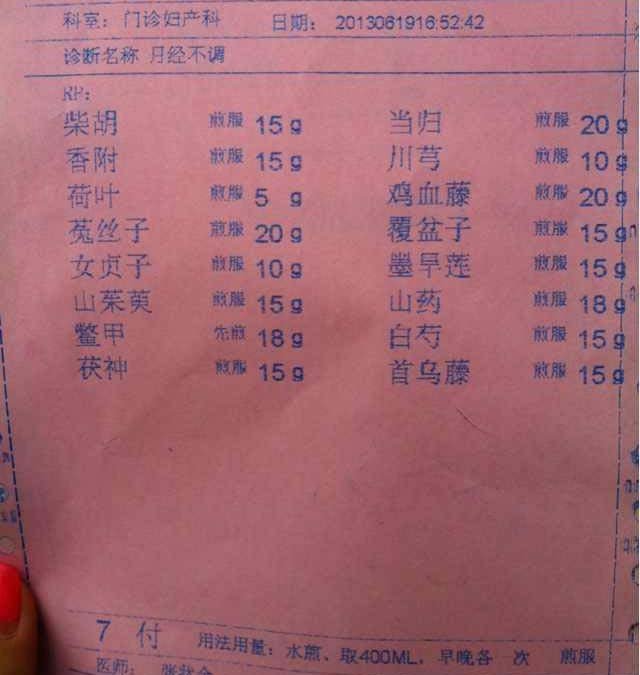 科室：门诊妇产科 日期：2013061916:52:42
诊断名称 月经不调
RP:
柴胡 煎服 15 g 当归 煎服 20 g
香附 煎服 15 g 川芎 煎服 10 g
荷叶 煎服 5 g 鸡血藤 煎服 20 g
菟丝子 煎服 20 g 覆盆子 煎服 15 g
女贞子 煎服 10 g 墨旱莲 煎服 15 g
山茱萸 煎服 15 g 山药 煎服 18 g
鳖甲 先煎 18 g 白芍 煎服 15 g
茯神 煎服 15 g 首乌藤 煎服 15 g
7 付 用法用量：水煎、取400ML，早晚各一次 煎服
医师：